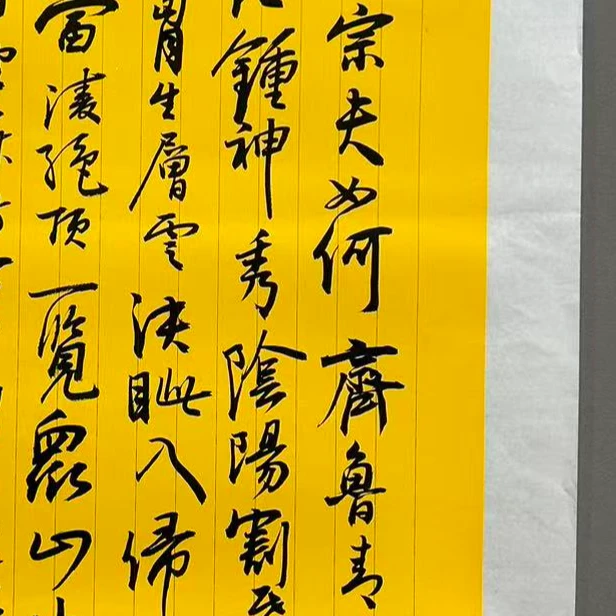 宗夫如何齊魯青
鍾神秀陰陽割
胷生層雲決眥入歸
當淩絕頂一覽眾山